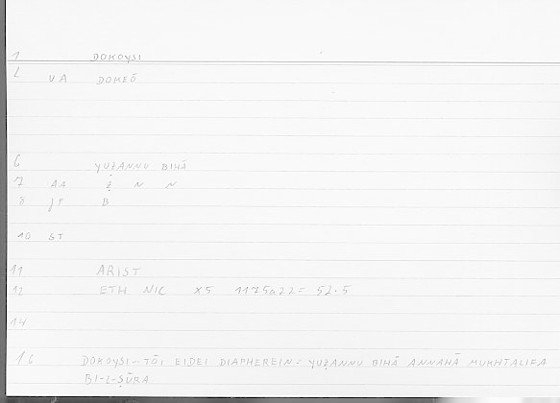 1 DOKOYSI
2 VA DOKEŌ
6 YUẒANNU BIHĀ
7 AA Ẓ N N
8 JP B
10 ST
11 ARIST
12 ETH NIC X5 1175a22 = 53.5
14
16 DOKOYSI - TŌI EIDEI DIAPHEREIN = YUẒANNU BIHĀ ANNAHĀ MUKHTALIFA
BI-L-ṢŪRA